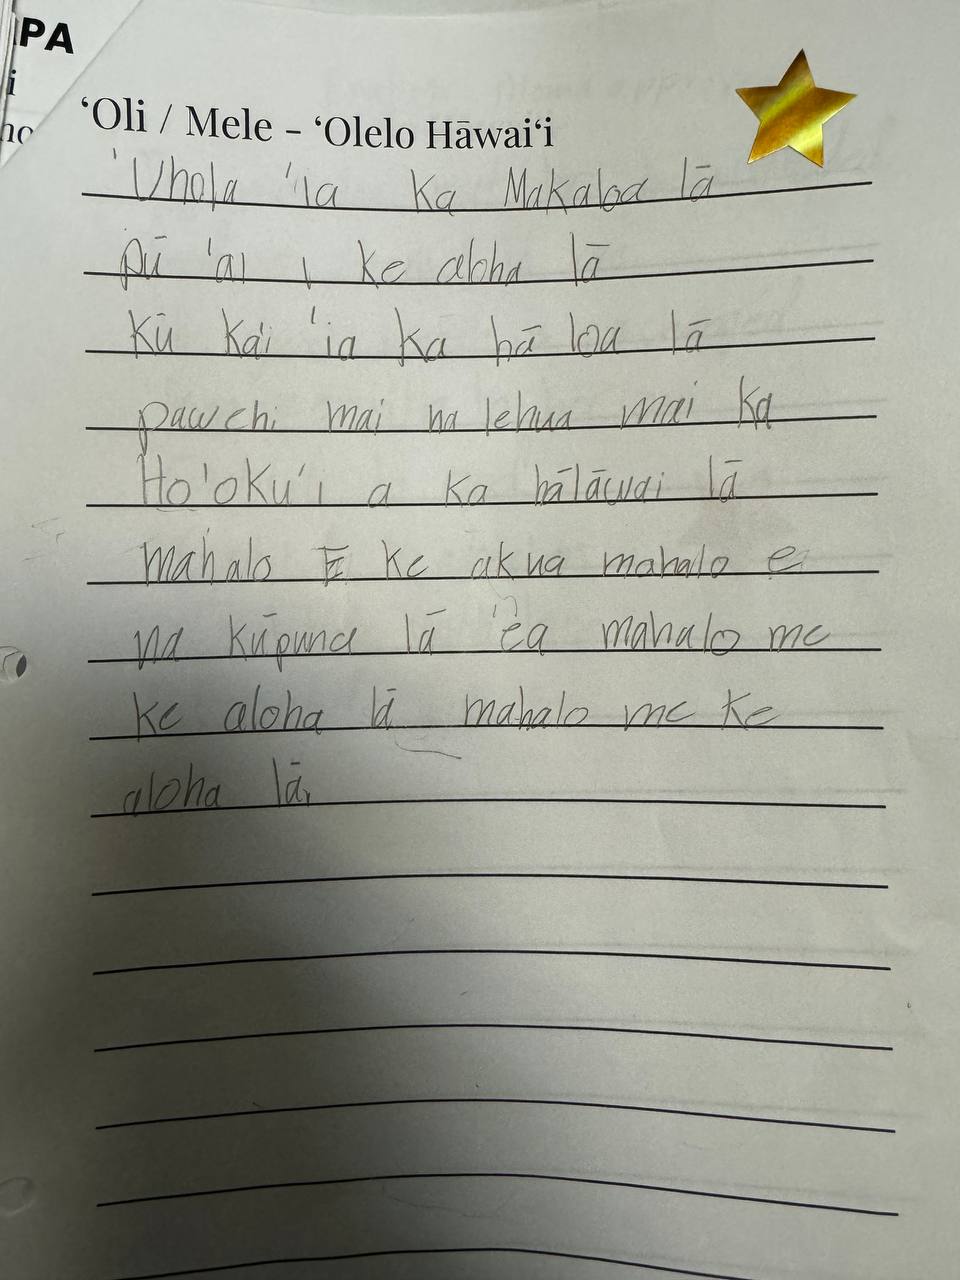 PA
i
no
ʻOli / Mele - ʻOlelo Hāwaiʻi
'Uhola 'ia Ka Makaloa lā
pū 'ai i ke aloha lā
Kū Ka'i 'ia Ka hā loa lā
pawehi mai na lehua mai Ka
Ho'oKu'i a Ka hālāwai lā
mahalo E Ke akua mahalo e
na Kūpuna lā 'ēa mahalo me
Ke aloha lā mahalo me Ke
aloha lā,